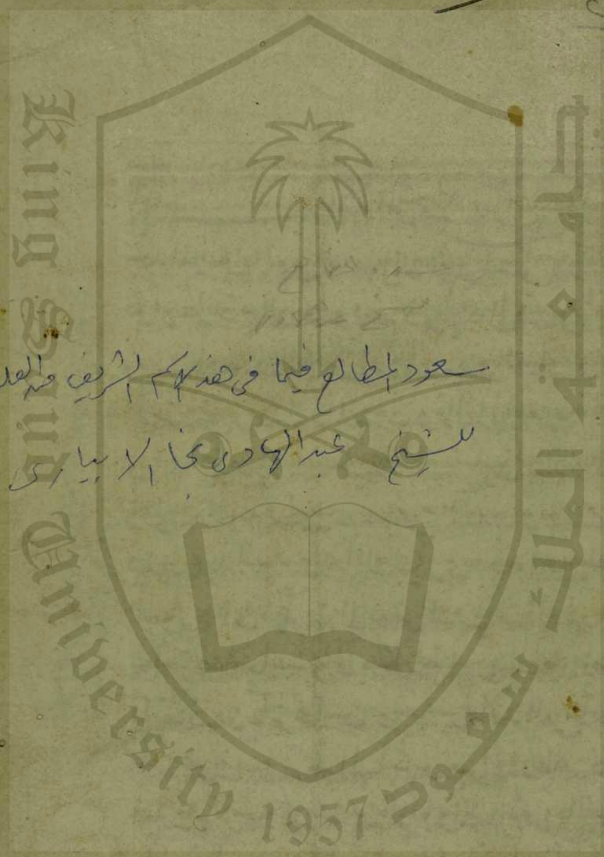 سعود المطالع فيما فى هذا الاسم الشريف من العلو
للشيخ عبدالهادى نجا الابيارى
King Saud University 1957
جامعة الملك سعود